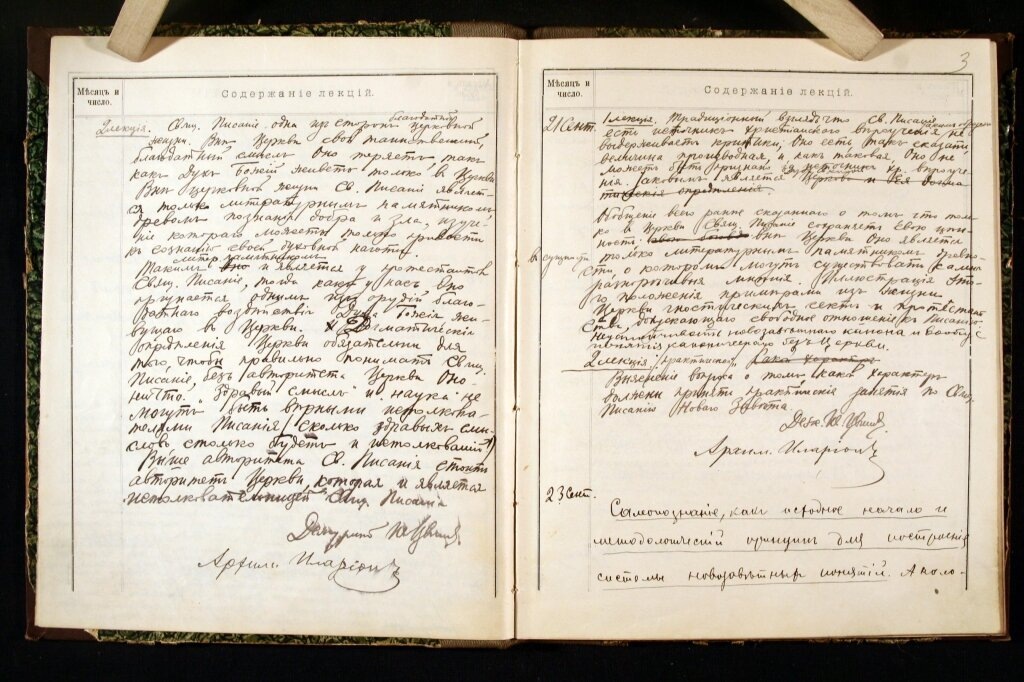 Мѣсяцъ и
число.
Содержаніе лекцій.
2 лекція. Свящ. Писаніе одна изъ сторонъ благодатной церковной
жизни. Внѣ Церкви свой таинственный,
благодатный смыслъ Оно теряетъ, такъ
какъ Духъ Божій живетъ только въ Церкви.
Внѣ церковной жизни Св. Писаніе являет-
ся только литературнымъ памятникомъ,
древомъ познанія добра и зла, изуче-
ніе котораго можетъ только привести
къ сознанію своей духовной наготы.
литер. памятникомъ
Такимъ оно и является у протестантовъ
Свящ. Писаніе, тогда какъ у насъ Оно
является однимъ изъ орудій благо-
датнаго воздѣйствія Духа Божія жи-
вущаго въ Церкви. Догматическія
опредѣленія Церкви обязательны для
того, чтобы правильно понимать Свящ.
Писаніе, безъ авторитета Церкви Оно-
ничто. Здравый смыслъ и наука не
могутъ быть вѣрными истолкова-
телями Писанія (сколько здравыхъ смы-
словъ столько будетъ и истолкованій!)
Выше авторитета Св. Писанія стоитъ
авторитетъ Церкви, которая и является
Свящ. Писанія
Дежурный
Архим. Иларіонъ
3
Мѣсяцъ и
число.
Содержаніе лекцій.
21 Сент. 1 лекція. Традиціонный взглядъ что Св. Писаніе
есть источникъ христіанскаго вѣроученія не
выдерживаетъ критики; Оно есть такъ сказать
величина производная и какъ таковая, Оно не
можетъ быть признано за источникъ хр. вѣроуче-
нія. Таковымъ является Церковь и Ея догма-
тическія опредѣленія.
Обобщеніе всего ранѣе сказаннаго о томъ что толь-
ко въ Церкви Свящ. Писаніе сохраняетъ свою цѣн-
ность: внѣ Церкви Оно является
въ сущности только литературнымъ памятникомъ древно-
сти, о которомъ могутъ существовать самыя
разнорѣчивыя мнѣнія. Иллюстрація это-
го положенія примѣрами изъ жизни
Церкви гностическихъ сектъ и протестант-
ства, допускающаго свободное отношеніе къ Писанію
новозавѣтнаго канона и вообще
понятія каноническаго безъ Церкви.
2 лекція: (практическая).
Выясненіе вопроса о томъ какой характеръ
должны принять практическія занятія по Свящ.
Писанію Новаго Завѣта.
Деж.
Архим. Иларіонъ
23 Сент.
Самопознаніе, какъ исходное начало и
методологическій принципъ для построенія
системы новозавѣтныхъ понятій. Аполо-